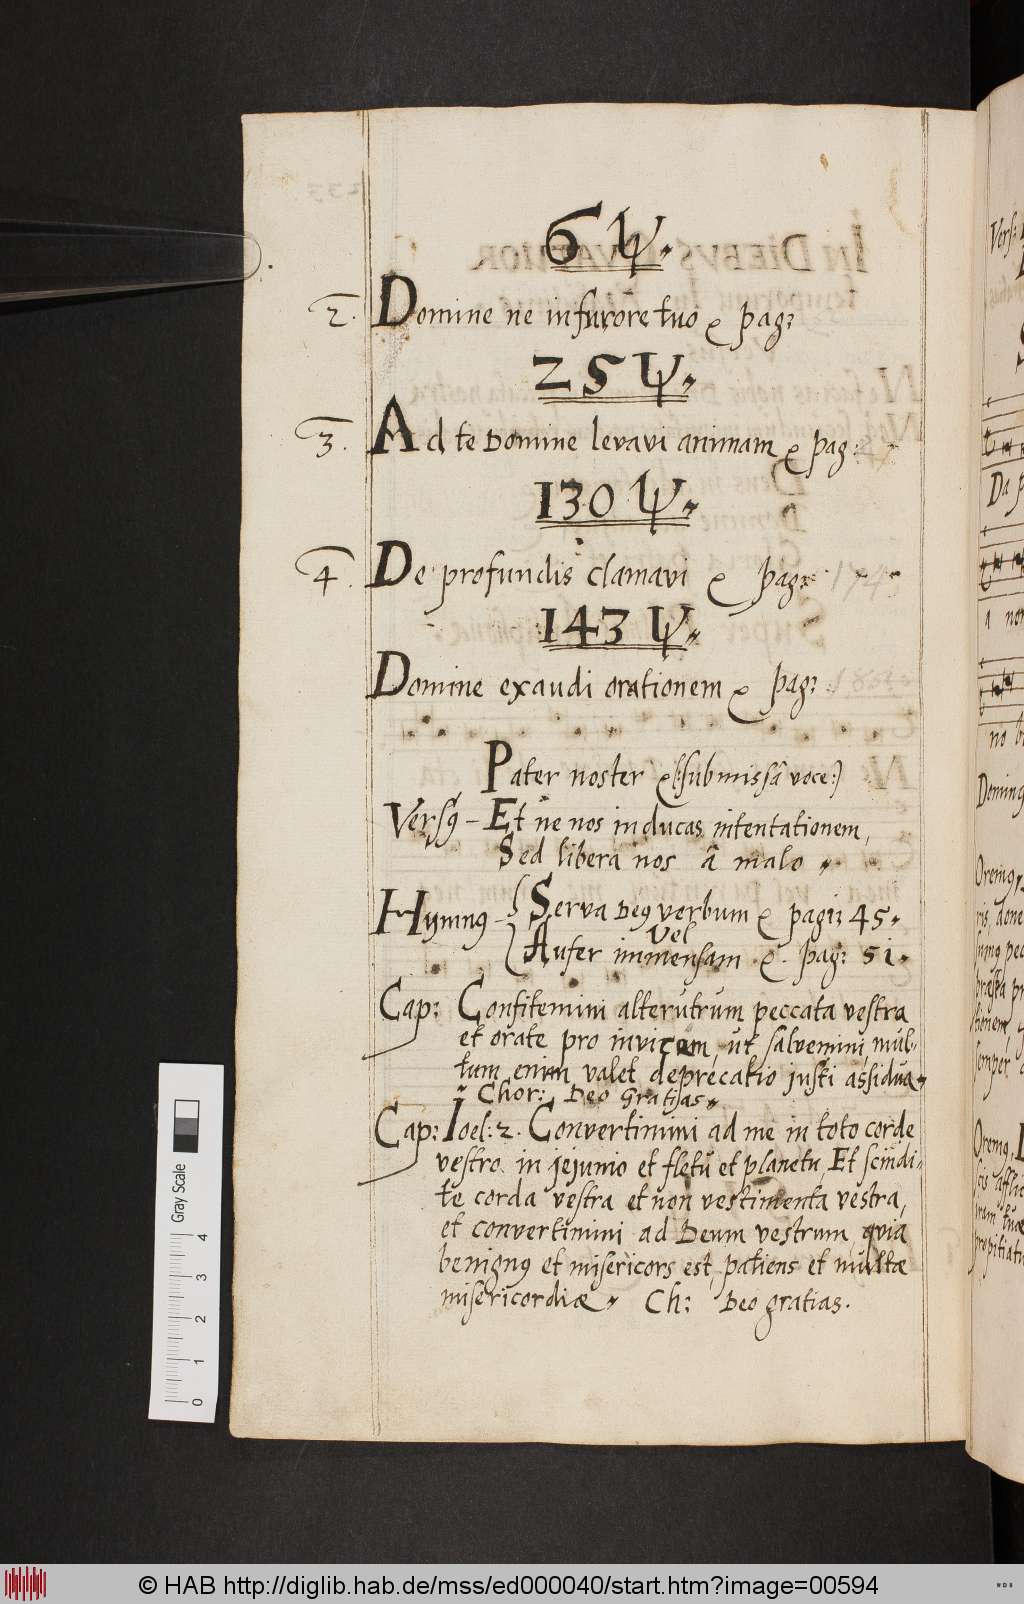 6 Ψ.
2. Domine ne in furore tuo & pag:
25 Ψ.
3. Ad te Domine levavi animam & pag:
130 Ψ.
4. De profundis clamavi & pag:
143 Ψ.
Domine exaudi orationem & pag:
Pater noster &c (:submissâ voce:)
Versꝰ – Et ne nos inducas in tentationem,
Sed libera nos â malo.
Hymnꝰ – Serva Deꝰ verbum & pag: 45.
Vel
Aufer immensam &. pag: 51.
Cap: Confitemini alterutrum peccata vestra
et orate pro invicem, ut salvemini, mul-
tum enim valet deprecatio justi assidua.
Chor: Deo gratias.
Cap: Ioel: 2. Convertimini ad me in toto corde
vestro in jejunio et fletu et planctu, Et scindi-
te corda vestra et non vestimenta vestra,
et convertimini ad Deum vestrum quia
benignꝰ et misericors est, patiens et multæ
misericordiæ. Ch: Deo gratias.
Vers:
Da p
a non
no b
Oremꝰ,
Gray Scale
4
3
2
1
0
© HAB http://diglib.hab.de/mss/ed000040/start.htm?image=00594